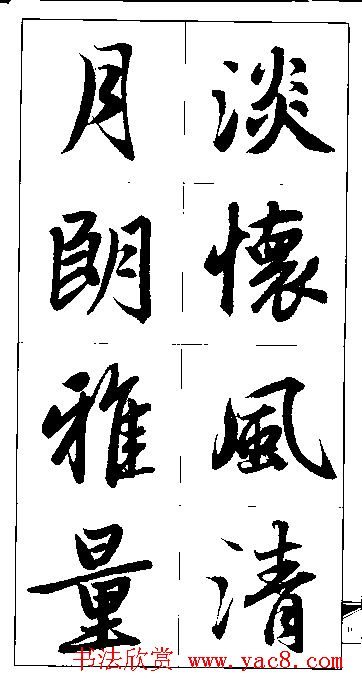 淡懷風清
月朗雅量
书法欣赏 www.yac8.com